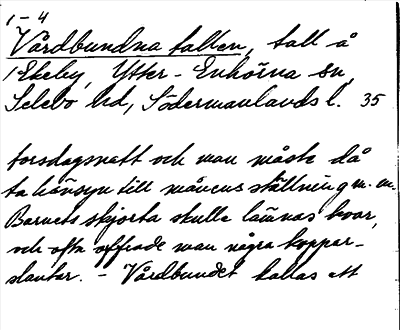 1-4
Vårdbundna tallen, tall å
1 Ekeby, Ytter-Enhörna sn,
Selebo hd, Södermanlands l. 35
torsdagsnatt och man måste då
ta hänsyn till månens ställning m.m.
Barnets skjorta skulle lämnas kvar,
och ofta offrade man några koppar-
slantar. - Vårdbundet kallas ett